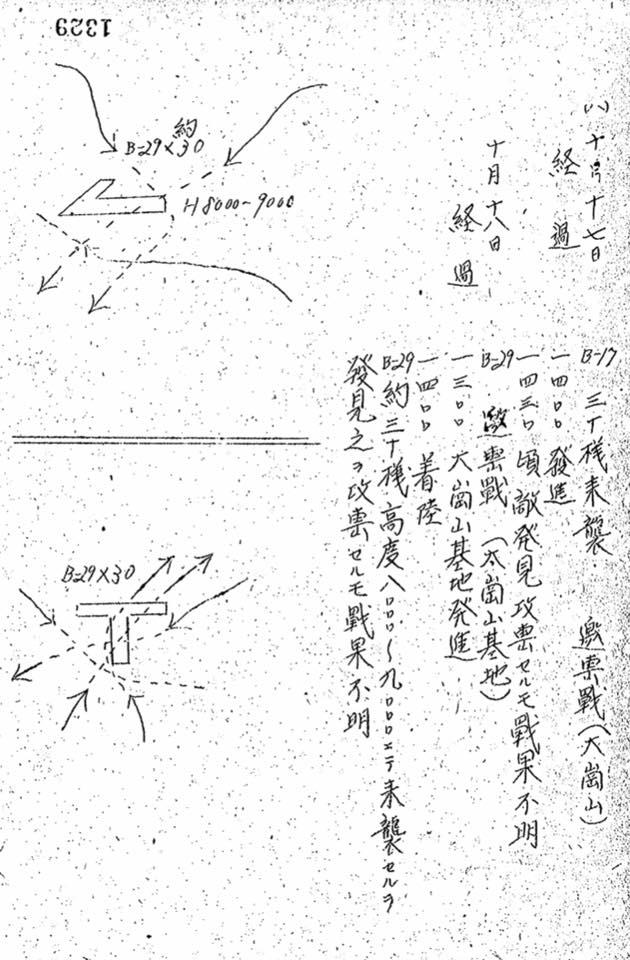 1329
(八) 十月十七日 B-17 三十機来襲 邀撃戰(大崗山)
経過 一四〇〇 發進
一四三〇頃敵発見攻撃セルモ戰果不明
十月十八日 B-29 邀撃戰(大崗山基地)
経過 一三〇〇 大崗山基地発進
一四〇〇 着陸
B=29約三十機高度八〇〇〇〜九〇〇〇ニテ来襲セルヲ
發見之ヲ攻撃セルモ戰果不明
約
B=29×30
H8000~9000
B=29×30